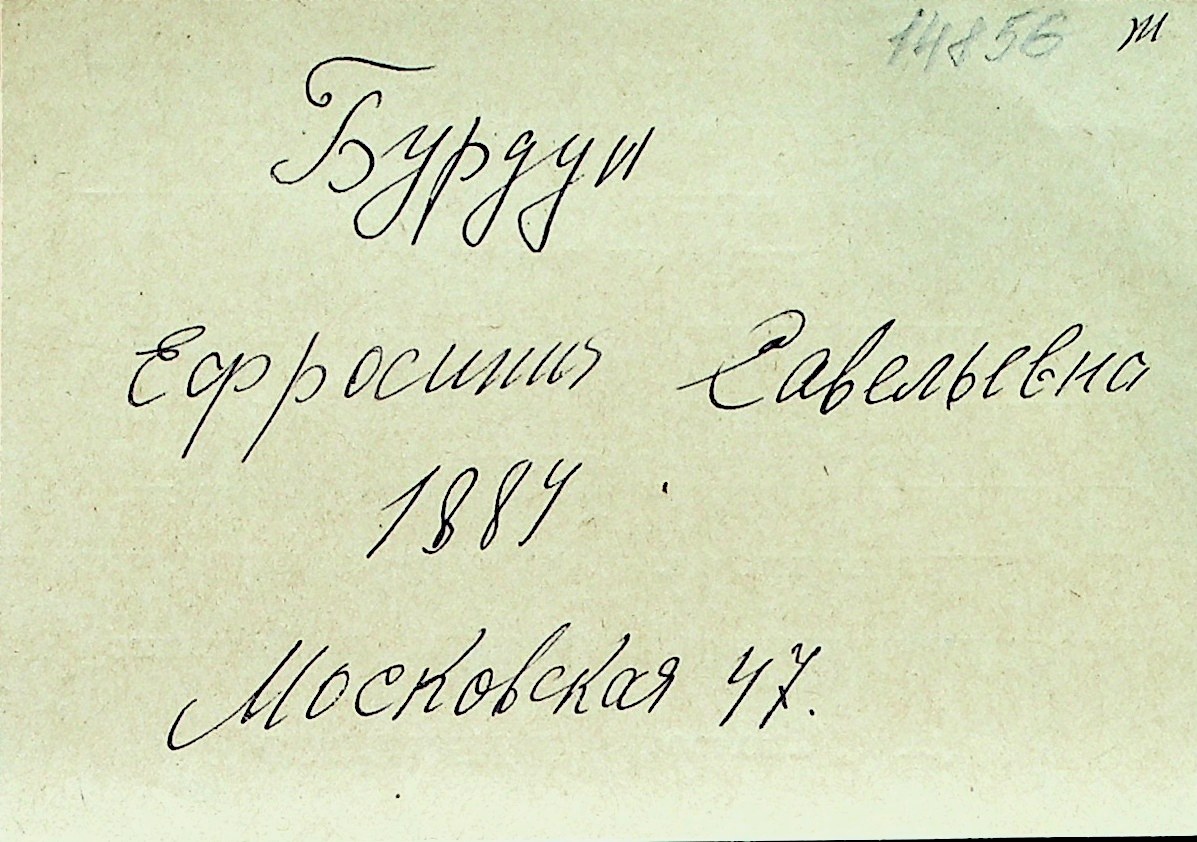 14856 т
Бурдун
Ефросиния Савельевна
1884
Московская 47.